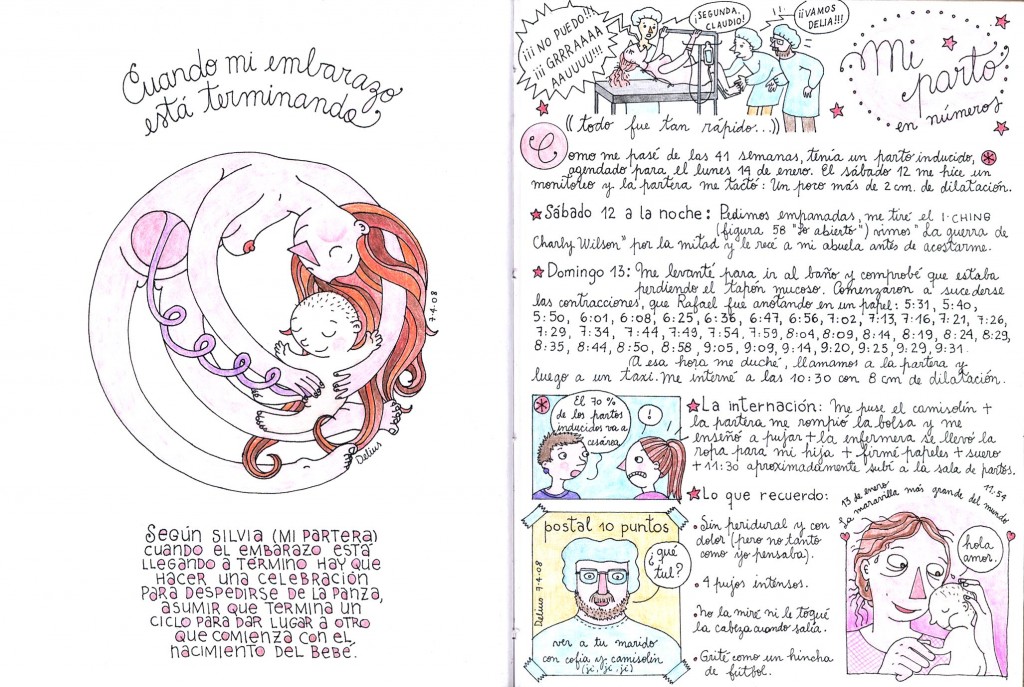 Cuando mi embarazo
está terminando
7-4-08
Delius
SEGÚN SILVIA (MI PARTERA)
CUANDO EL EMBARAZO ESTÁ
LLEGANDO A TÉRMINO HAY QUE
HACER UNA CELEBRACIÓN
PARA DESPEDIRSE DE LA PANZA,
ASUMIR QUE TERMINA UN
CICLO PARA DAR LUGAR A OTRO
QUE COMIENZA CON EL
NACIMIENTO DEL BEBÉ.
¡¡¡NO PUEDO!!!
¡¡¡GRRRAAAA
AAUUUU!!!!
¡SEGUNDA,
CLAUDIO!
¡¡VAMOS
DELIA!!!
Mi
parto
en números
((todo fue tan rápido...))
Como me pasé de las 41 semanas, tenía un parto inducido,
agendado para el lunes 14 de enero. El sábado 12 me hice un
monitoreo y la partera me tactó: Un poco más de 2 cm. de dilatación.
Sábado 12 a la noche: Pedimos empanadas, me tiré el I-CHING
(figura 58 "Lo abierto") vimos "La guerra de
Charly Wilson" por la mitad y le recé a mi abuela antes de acostarme.
Domingo 13: Me levanté para ir al baño y comprobé que estaba
perdiendo el tapón mucoso. Comenzaron a sucederse
las contracciones, que Rafael fue anotando en un papel: 5:31, 5:40,
5:50, 6:01, 6:08, 6:25, 6:36, 6:47, 6:56, 7:02, 7:13, 7:16, 7:21, 7:26,
7:29, 7:34, 7:44, 7:49, 7:54, 7:59, 8:04, 8:09, 8:14, 8:19, 8:24, 8:29,
8:35, 8:44, 8:50, 8:58, 9:05, 9:09, 9:14, 9:20, 9:25, 9:29, 9:31.
A esa hora me duché, llamamos a la partera y
luego a un taxi. Me interné a las 10:30 con 8 cm de dilatación.
El 70%
de los partos
inducidos va a
cesárea
!
La internación: Me puse el camisolín +
la partera me rompió la bolsa y me
enseñó a pujar + la enfermera se llevó la
ropa para mi hija + firmé papeles + suero
+ 11:30 aproximadamente subí a la sala de partos.
postal 10 puntos
¿qué
tul?
Delius 7-4-08
ver a tu marido
con cofia y camisolín
(jé, jé, jé)
Lo que recuerdo:
• Sin peridural y con
dolor (pero no tanto
como yo pensaba).
• 4 pujos intensos.
• no la miré ni le toqué
la cabeza cuando salía.
• Grité como un hincha
de fútbol.
13 de enero 11:54
La maravilla más grande del mundo
hola
amor.